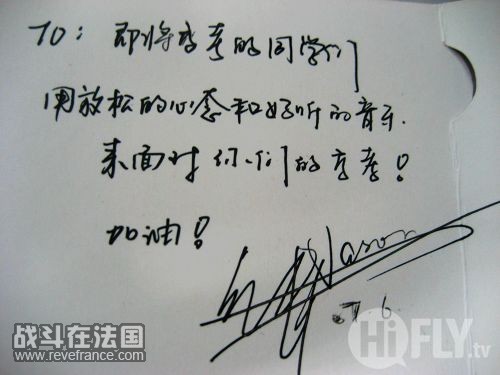 TO：即将高考的同学们
用放松的心态和好听的音乐.
来面对你们的高考！
加油！
Jason
07 6.
战斗在法国
www.revefrance.com
HiFLY.tv